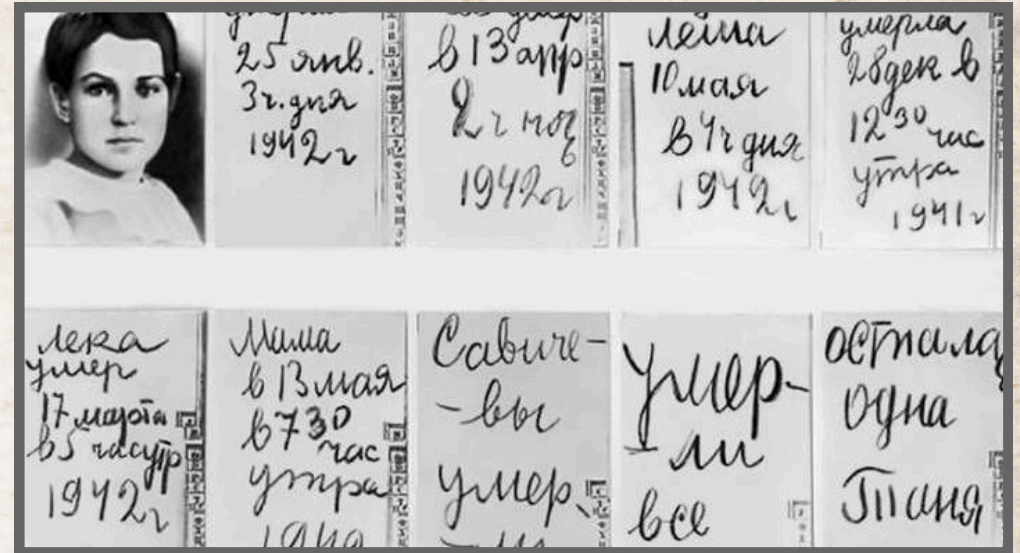 25 янв.
3ч. дня
1942 г
умер
в 13 апр
2ч ноч
1942г
Лёша
10 мая
в 4ч дня
1942г
умерла
28 дек в
12 30 час
утра
1941 г
Лека
умер
17 марта
в 5 час утр
1942г
Мама
в 13 мая
в 7 30
час
утра
Савиче-
-вы
умер
Умер-
-ли
все
остала
одна
Таня